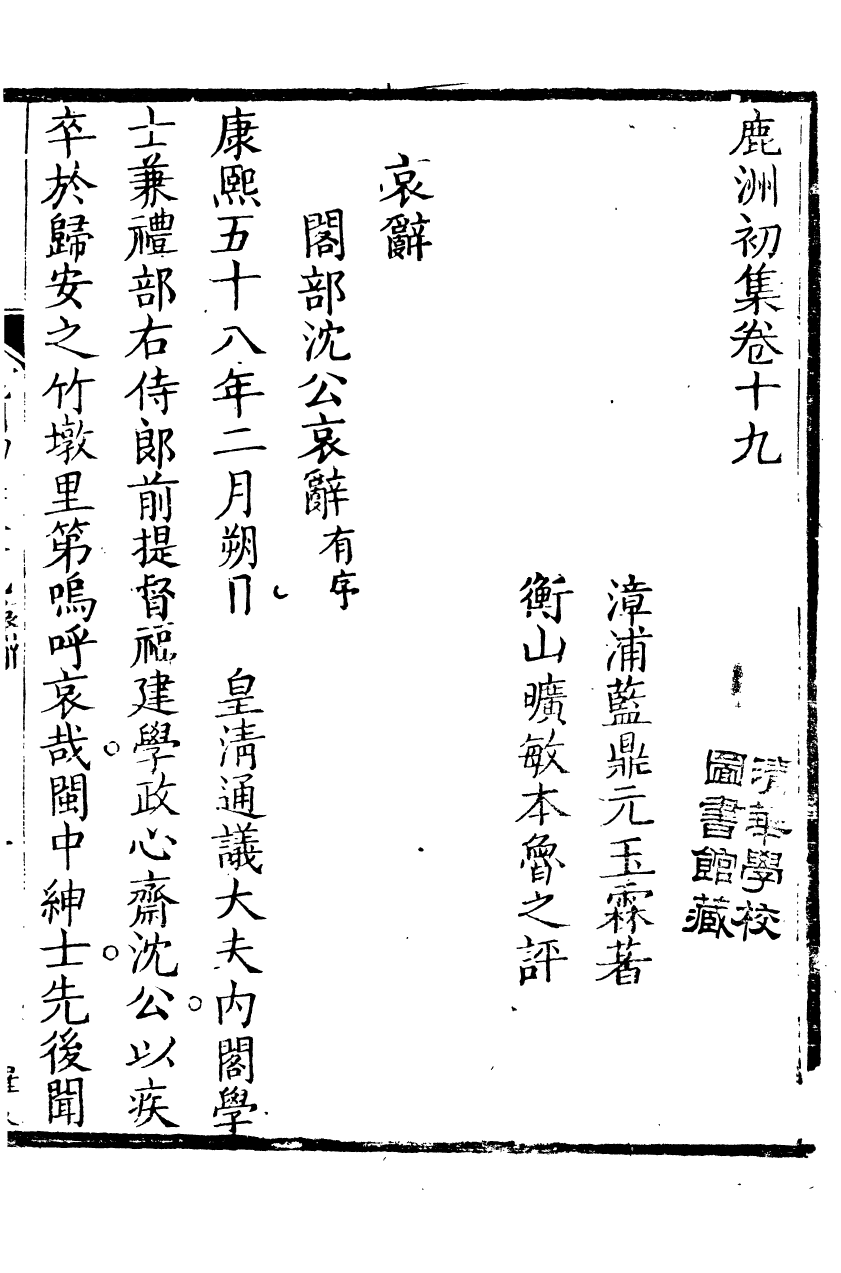 鹿洲初集卷十九
清華學校
圖書館藏
漳浦藍鼎元玉霖著
衡山曠敏本魯之評
哀辭
閣部沈公哀辭有序
康熙五十八年二月朔日 皇清通議大夫內閣學
士兼禮部右侍郎前提督福建學政心齋沈公以疾
卒於歸安之竹墩里第嗚呼哀哉閩中紳士先後聞